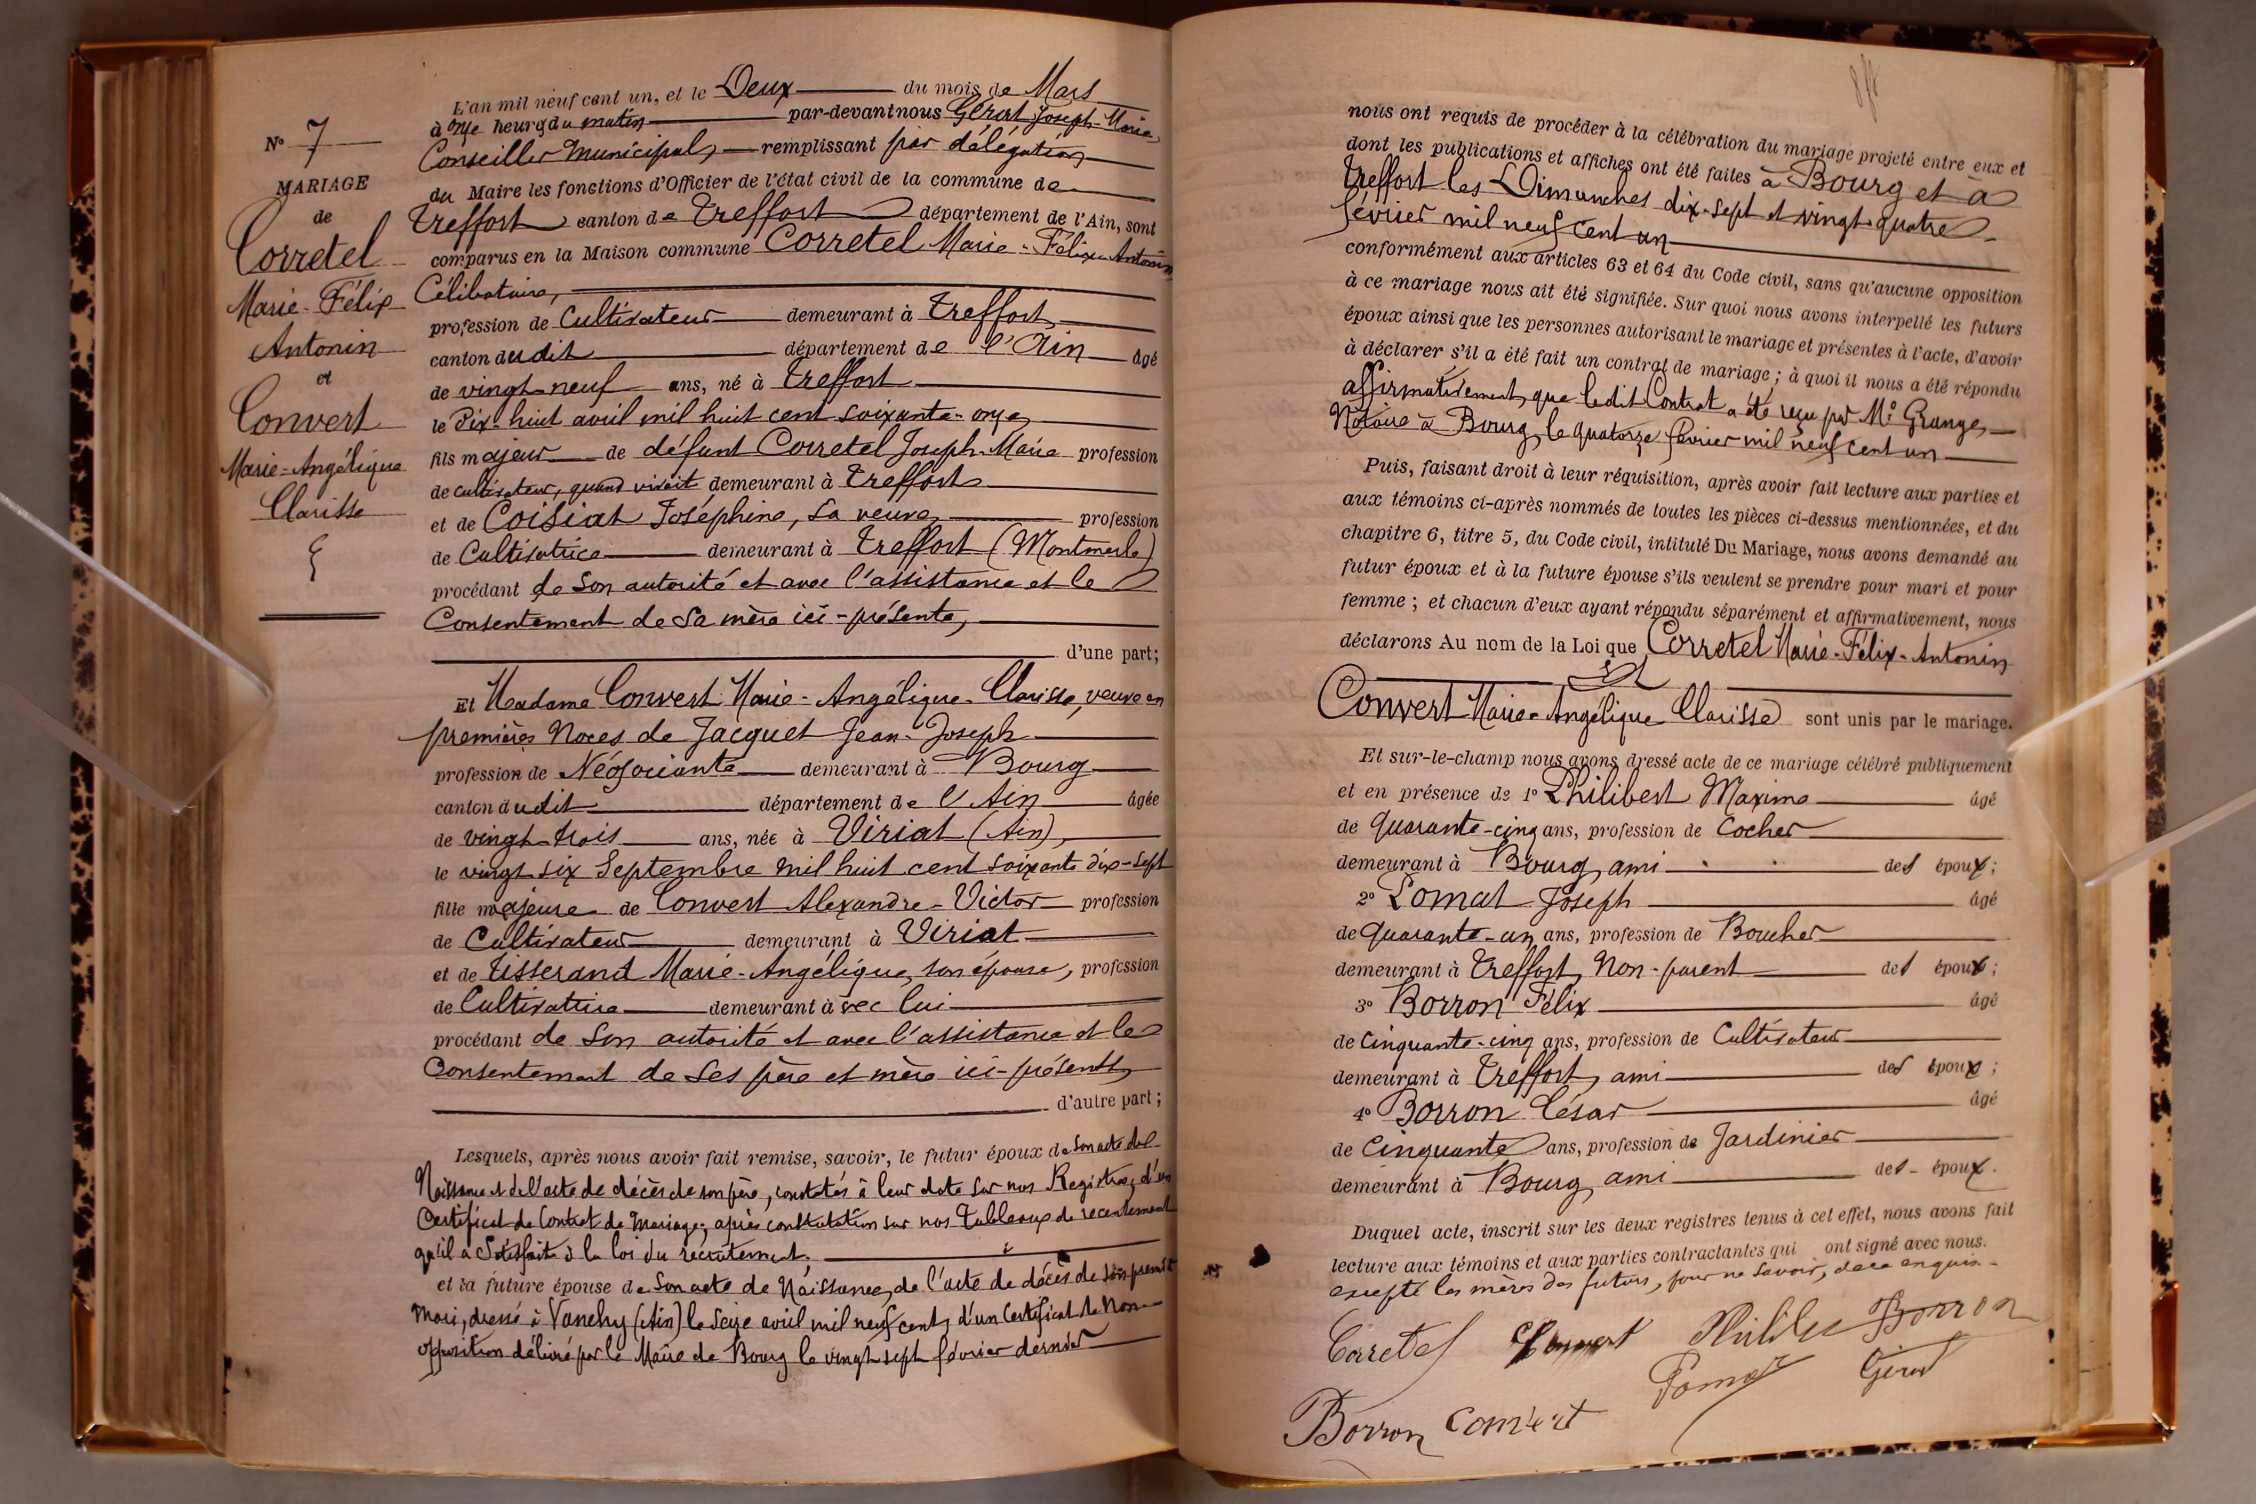 N° 7
MARIAGE
de
Corretel
Marie-Félix
Antonin
et
Convert
Marie-Angélique
Clarisse
L'an mil neuf cent un, et le Deux du mois de Mars
à onze heures du matin par-devant nous Gérat Joseph-Marie,
Conseiller Municipal, remplissant par délégation
du Maire les fonctions d'Officier de l'état civil de la commune de
Treffort canton de Treffort département de l'Ain, sont
comparus en la Maison commune Corretel Marie-Félix-Antonin
Célibataire,
profession de Cultivateur demeurant à Treffort
canton dudit département de l'Ain âgé
de vingt-neuf ans, né à Treffort
le Dix-huit avril mil huit cent soixante-onze
fils majeur de défunt Corretel Joseph-Marie profession
de cultivateur, quand vivait demeurant à Treffort
et de Coisiat Joséphine, sa veuve, profession
de Cultivatrice demeurant à Treffort (Montmerle)
procédant de son autorité et avec l'assistance et le
Consentement de sa mère ici-présente,
d'une part;
Et Madame Convert Marie-Angélique-Clarisse, veuve en
premières Noces de Jacquet Jean-Joseph
profession de Négociante demeurant à Bourg
canton dudit département de l'Ain âgée
de vingt-trois ans, née à Viriat (Ain),
le vingt-six Septembre mil huit cent soixante dix-sept
fille majeure de Convert Alexandre-Victor profession
de Cultivateur demeurant à Viriat
et de Tisserand Marie-Angélique, son épouse, profession
de Cultivatrice demeurant avec lui
procédant de son autorité et avec l'assistance et le
Consentement de ses père et mère ici-présents,
d'autre part;
Lesquels, après nous avoir fait remise, savoir, le futur époux de son acte de
Naissance et de l'acte de décès de son père, constatés à leur date sur nos Registres, d'un
Certificat de Contrat de Mariage; après constatation sur nos Tableaux de recensement
qu'il a satisfait à la loi du recrutement;
et la future épouse de son acte de Naissance, de l'acte de décès de son premier
mari, dressé à Vanchy (Ain) le seize avril mil neuf cent, d'un Certificat de Non-
opposition délivré par le Maire de Bourg le vingt-sept février dernier
nous ont requis de procéder à la célébration du mariage projeté entre eux et
dont les publications et affiches ont été faites à Bourg et à
Treffort les Dimanches dix-sept et vingt-quatre
février mil neuf cent un
conformément aux articles 63 et 64 du Code civil, sans qu'aucune opposition
à ce mariage nous ait été signifiée. Sur quoi nous avons interpellé les futurs
époux ainsi que les personnes autorisant le mariage et présentes à l'acte, d'avoir
à déclarer s'il a été fait un contrat de mariage; à quoi il nous a été répondu
affirmativement, que ledit Contrat a été reçu par Me Grange,
Notaire à Bourg, le quatorze février mil neuf cent un
Puis, faisant droit à leur réquisition, après avoir fait lecture aux parties et
aux témoins ci-après nommés de toutes les pièces ci-dessus mentionnées, et du
chapitre 6, titre 5, du Code civil, intitulé Du Mariage, nous avons demandé au
futur époux et à la future épouse s'ils veulent se prendre pour mari et pour
femme; et chacun d'eux ayant répondu séparément et affirmativement, nous
déclarons Au nom de la Loi que Corretel Marie-Félix-Antonin
Et
Convert Marie-Angélique Clarisse sont unis par le mariage.
Et sur-le-champ nous avons dressé acte de ce mariage célébré publiquement
et en présence de 1° Philibert Maxime âgé
de quarante-cinq ans, profession de Cocher
demeurant à Bourg, ami des époux;
2° Pomat Joseph âgé
de quarante-un ans, profession de Boucher
demeurant à Treffort, Non-parent des époux;
3° Borron Félix âgé
de Cinquante-cinq ans, profession de Cultivateur
demeurant à Treffort, ami des époux;
4° Borron César âgé
de Cinquante ans, profession de Jardinier
demeurant à Bourg, ami des époux.
Duquel acte, inscrit sur les deux registres tenus à cet effet, nous avons fait
lecture aux témoins et aux parties contractantes qui ont signé avec nous.
excepté les mères des futurs, pour ne savoir, de ce enquis.
Corretel Convert Borron
Pomat Gérat
Borron Convert